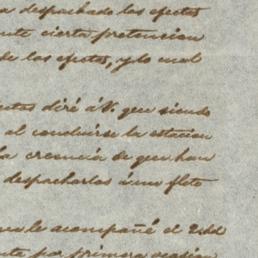 a despachado los efectos
nte cierta pretencion
de los efectos, y lo cual
ntes diré á V. que siendo
al concluirse la estacion
la creencia de que han
despacharlos á un flete
le acompañé el
nte por primera ocasion